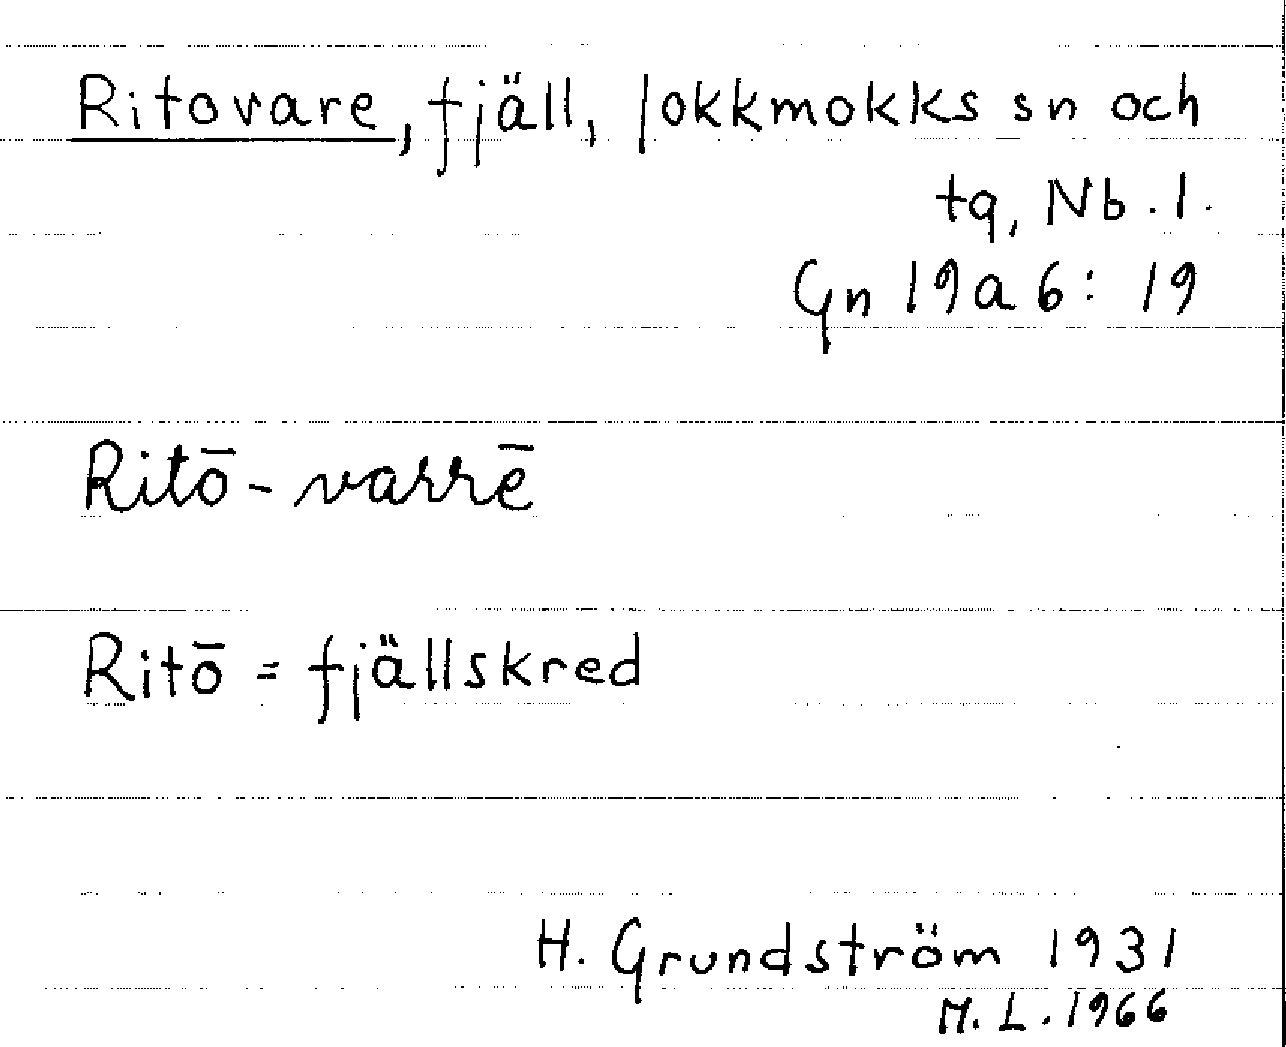 Ritovare, fjäll, Jokkmokks sn och
tg, Nb. l.
Gn 19a6: 19
Ritō-varrē
Ritō = fjällskred
H. Grundström 1931
M. L. 1966